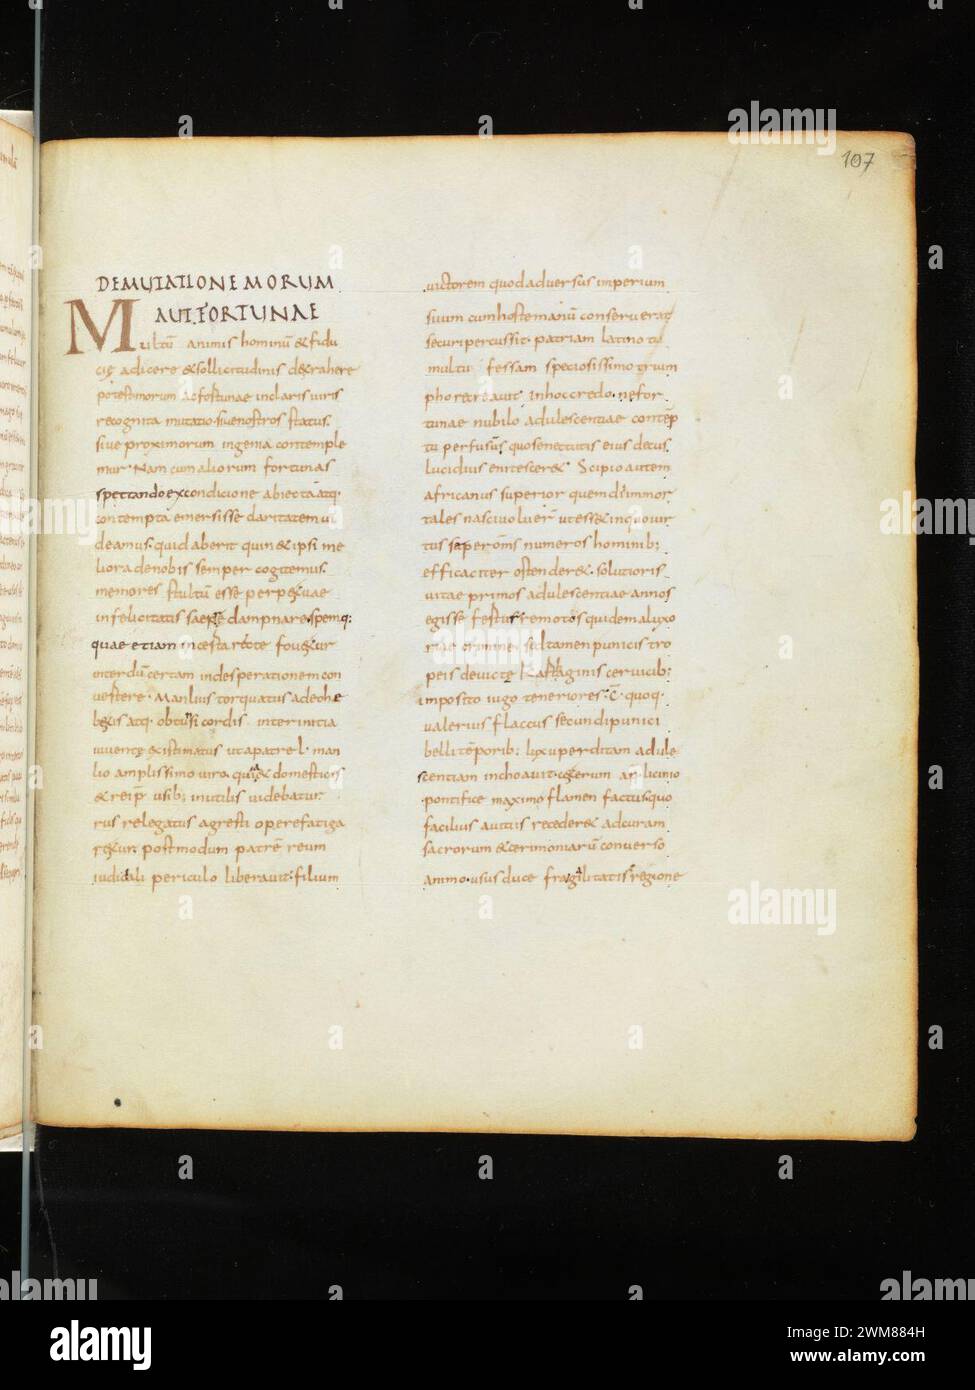 107
DE MUTATIONE MORUM
AUT FORTUNAE
Multū animis hominū & fidu
cię adicere & sollicitudinis detrahere
potest morum ac fortunae in claris uiris
recognita mutatio siue nostros status.
siue proximorum ingenia contemple
mur. Nam cum aliorum fortunas
spectando ex condicione abiecta atq.
contempta emersisse claritatem ui
deamus. quid aberit quin & ipsi me
liora de nobis semper cogitemus.
memores stultū esse perpetuae
infelicitatis se dampnare. spemq;
quae etiam incerta recte fouetur
interdū certam in desperationem con
uertere. Manlius torquatus adeo he
betis atq. obtusi cordis inter initia
iuuentę existimatus ut a patre l. man
lio amplissimo uiro quia & domesticis
& reip usib; inutilis uidebatur.
rus relegatus agresti opere fatiga
retur. postmodum patrē reum
iudiciali periculo liberauit. filium
uictorem quod aduersus imperium
suum cum hoste manū conseruerat
securi percussit. patriam latino tu
multu fessam speciosissimo trium
pho recreauit in hoc credo. ne for
tunae nubilo adulescentiae contēp
tu perfusus quo senectutis eius decus
lucidius enitesceret. Scipio autem
africanus superior quem dii immor
tales nasci uoluer̄ ut esset in quo uir
tus se per om̄s numeros hominib;
efficaciter ostenderet. solutioris
uitae primos adulescentiae annos
egisse fertur remotos quidem a luxo
riae crimine. sed tamen punicis tro
peis deuictę Kartaginis ceruicib;
imposito iugo teneriores. C̄ quoq.
ualerius flaccus secundi punici
belli tēporib; luxu perditam adule
scentiam inchoauit. ceterum a p. licinio
pontifice maximo flamen factus. quo
facilius a uitiis recederet ad curam
sacrorum & cerimoniarū conuerso
animo. usus duce fragilitatis regione
alamy
alamy
alamy
alamy
a
alamy
Image ID: 2WM884H
www.alamy.com